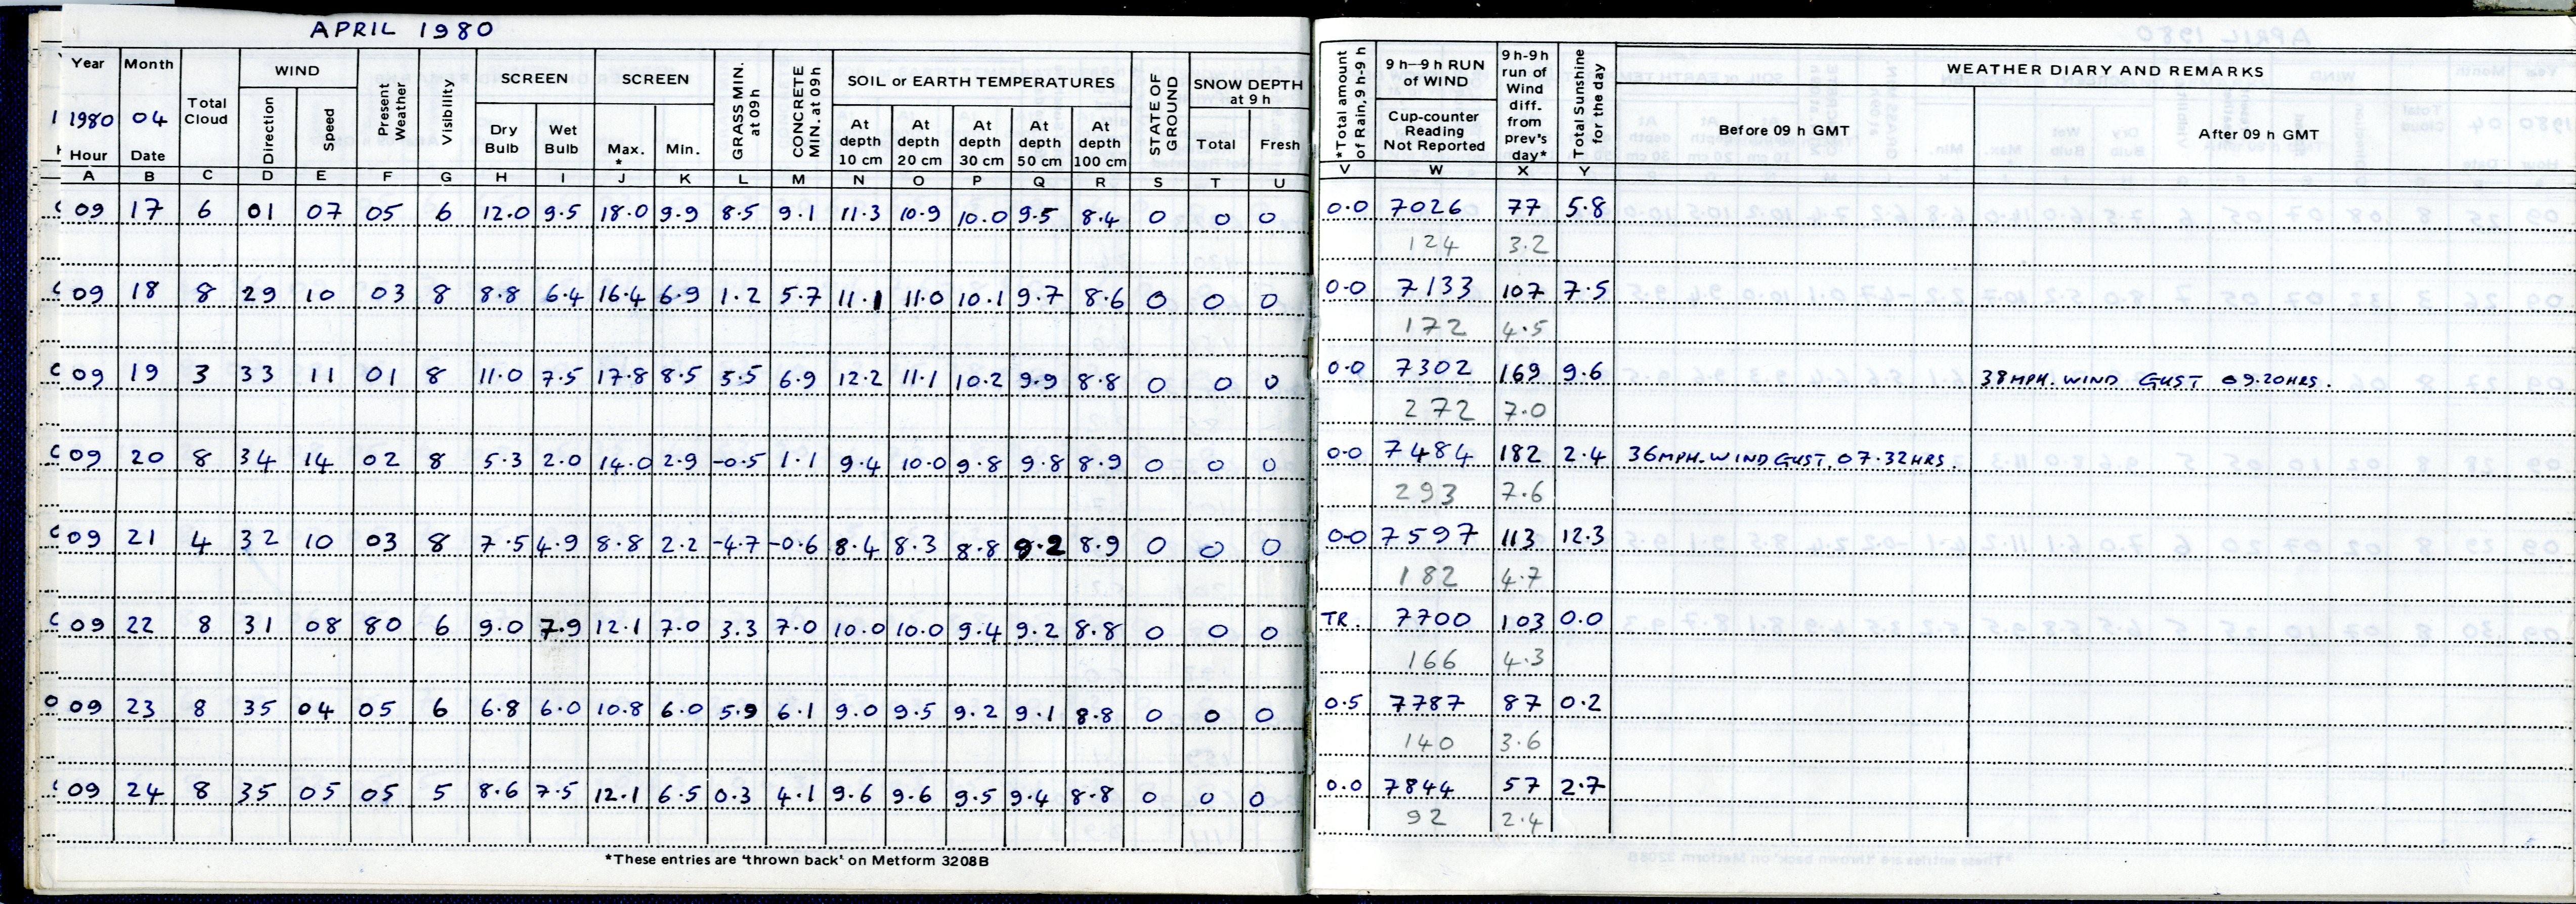 APRIL 1980
Year Month Total Cloud WIND Present Weather Visibility SCREEN SCREEN GRASS MIN. at 09h CONCRETE MIN. at 09h SOIL or EARTH TEMPERATURES STATE OF GROUND SNOW DEPTH at 9 h *Total amount of Rain, 9 h-9 h 9 h—9 h RUN of WIND 9 h-9h run of Wind diff. from prev's day* Total Sunshine for the day WEATHER DIARY AND REMARKS
1980 04 Direction Speed Dry Bulb Wet Bulb Max. * Min. At depth 10 cm At depth 20 cm At depth 30 cm At depth 50 cm At depth 100 cm Total Fresh Cup-counter Reading Not Reported Before 09 h GMT After 09 h GMT
Hour Date
A B C D E F G H I J K L M N O P Q R S T U V W X Y
09 17 6 01 07 05 6 12.0 9.5 18.0 9.9 8.5 9.1 11.3 10.9 10.0 9.5 8.4 0 0 0 0.0 7026 77 5.8
124 3.2
09 18 8 29 10 03 8 8.8 6.4 16.4 6.9 1.2 5.7 11.1 11.0 10.1 9.7 8.6 0 0 0 0.0 7133 107 7.5
172 4.5
09 19 3 33 11 01 8 11.0 7.5 17.8 8.5 3.5 6.9 12.2 11.1 10.2 9.9 8.8 0 0 0 0.0 7302 169 9.6 38MPH. WIND GUST 09.20HRS.
272 7.0
09 20 8 34 14 02 8 5.3 2.0 14.0 2.9 -0.5 1.1 9.4 10.0 9.8 9.8 8.9 0 0 0 0.0 7484 182 2.4 36MPH. WIND GUST. 07.32HRS.
293 7.6
09 21 4 32 10 03 8 7.5 4.9 8.8 2.2 -4.7 -0.6 8.4 8.3 8.8 9.2 8.9 0 0 0 0.0 7597 113 12.3
182 4.7
09 22 8 31 08 80 6 9.0 7.9 12.1 7.0 3.3 7.0 10.0 10.0 9.4 9.2 8.8 0 0 0 TR. 7700 103 0.0
166 4.3
09 23 8 35 04 05 6 6.8 6.0 10.8 6.0 5.9 6.1 9.0 9.5 9.2 9.1 8.8 0 0 0 0.5 7787 87 0.2
140 3.6
09 24 8 35 05 05 5 8.6 7.5 12.1 6.5 0.3 4.1 9.6 9.6 9.5 9.4 8.8 0 0 0 0.0 7844 57 2.7
92 2.4
*These entries are 'thrown back' on Metform 3208B